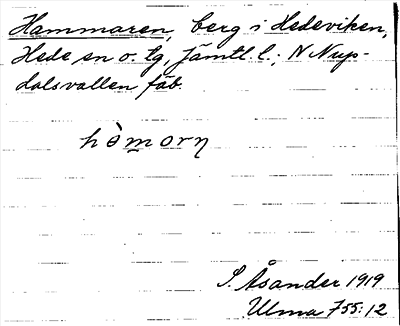 Hammaren, berg i Hedeviken,
Hede sn o. tg, Jämtl. l.; N Nyp-
dalsvallen fäb.
hòmorn̥
S. Åsander 1919
Ulma 755:12